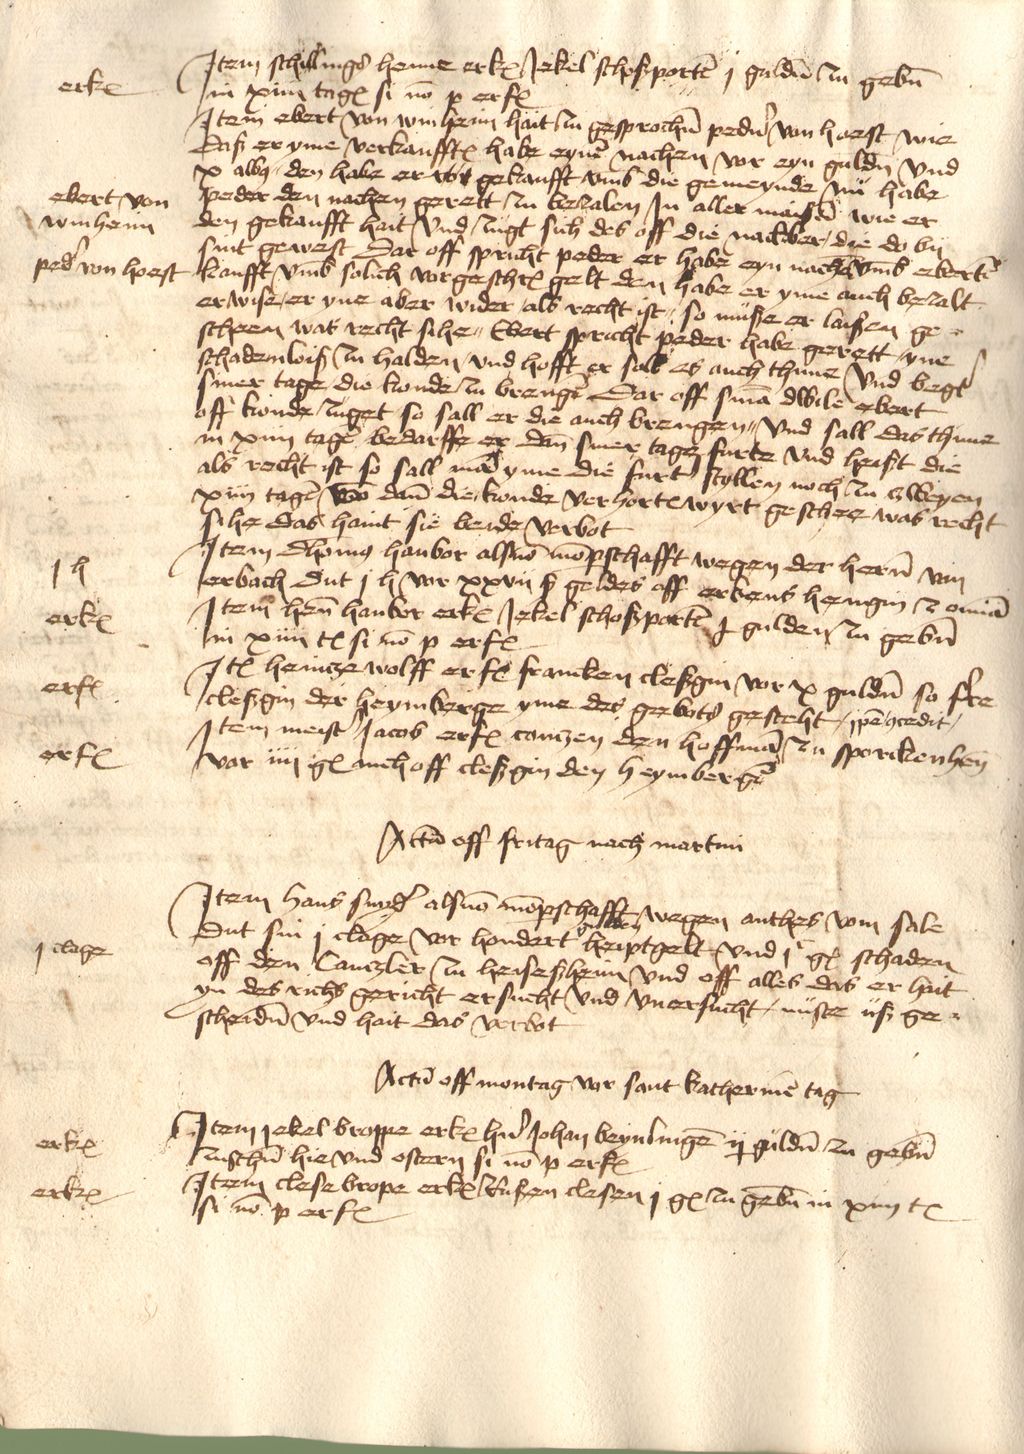 erk
Item schillings henne erk Jekel schoßporten j guldin zu gebin
in xiiii tag si no p erf
Item ebert von winheim hait zu gesprochin peder von hoest wie
das er yme verkaufft habe eyne nachen vor eyn guldin und
x albus den habe er gekaufft umb die gemeynde nu habe
ebert von
winheim
peder den nachen gerett zu bezalen In aller maissen wie er
den gekaufft hait und zugt sich des off die nackber die do bij
peder von hoest
sint gewest Dar off spricht peder er habe eyn nachen umb eberten
kaufft umb solich vorgeschr gelt den habe er yme auch bezalt
erwise er yne aber wider als recht ist so musse er laissen ge
scheen was recht sihe Ebert spricht peder habe gerett yne
schadenloiß zu halden und hofft er sall es auch thune und begert
siner tage die konde zu brengen Dar off sint dwile ebert
off konde zuget so sall er die auch brengen und sall das thune
in xiiii tage bedarffe er dan siner tage furte und heißt die
als recht ist so sall man yme die furt stellen noch zu zweyen
xiiii tagen wan dan die konde verhort wyrt geschee was recht
sihe das haint sie beide verbot
j h
Item haubor als momperschafft wegen der hern von
erbach dut j h vor xxviii ß geldes off erkens hengin z omnia
erk
Item hen haubor erk Jekel schoßporten guldin zu gebin
in xiiii t si no p erf
erf
It heintze wolff erf francken cleßgin vor x guldin so fere
cleßgin der heymberge yme des gebots gesteht
erf
Item meist Jacob erf contzen den hoffman zu sporckenhen
vor iiii g auch off cleßgin den heymbergen
Actum off fritag nach martini
Item hans snyder als momperschafft wegen anthes vom sale
j clage
dut sin j clage vor hondert gulden heiptgelt und j g schaden
off den Cantzler zu heiseßheim und off alles das er hait
yn des richs gericht ersucht und unersucht uß ge
scheidin und hait das verbot
Actum off montag vor sant katherinen tag
erk
Item jekel broppe erk her Johan beynlingen ij guldin zu gebin
zuschen hie und ostern si no p erf
erk
Item clese brope erk clesen j g zu gebin in xiiii t
si no p erf